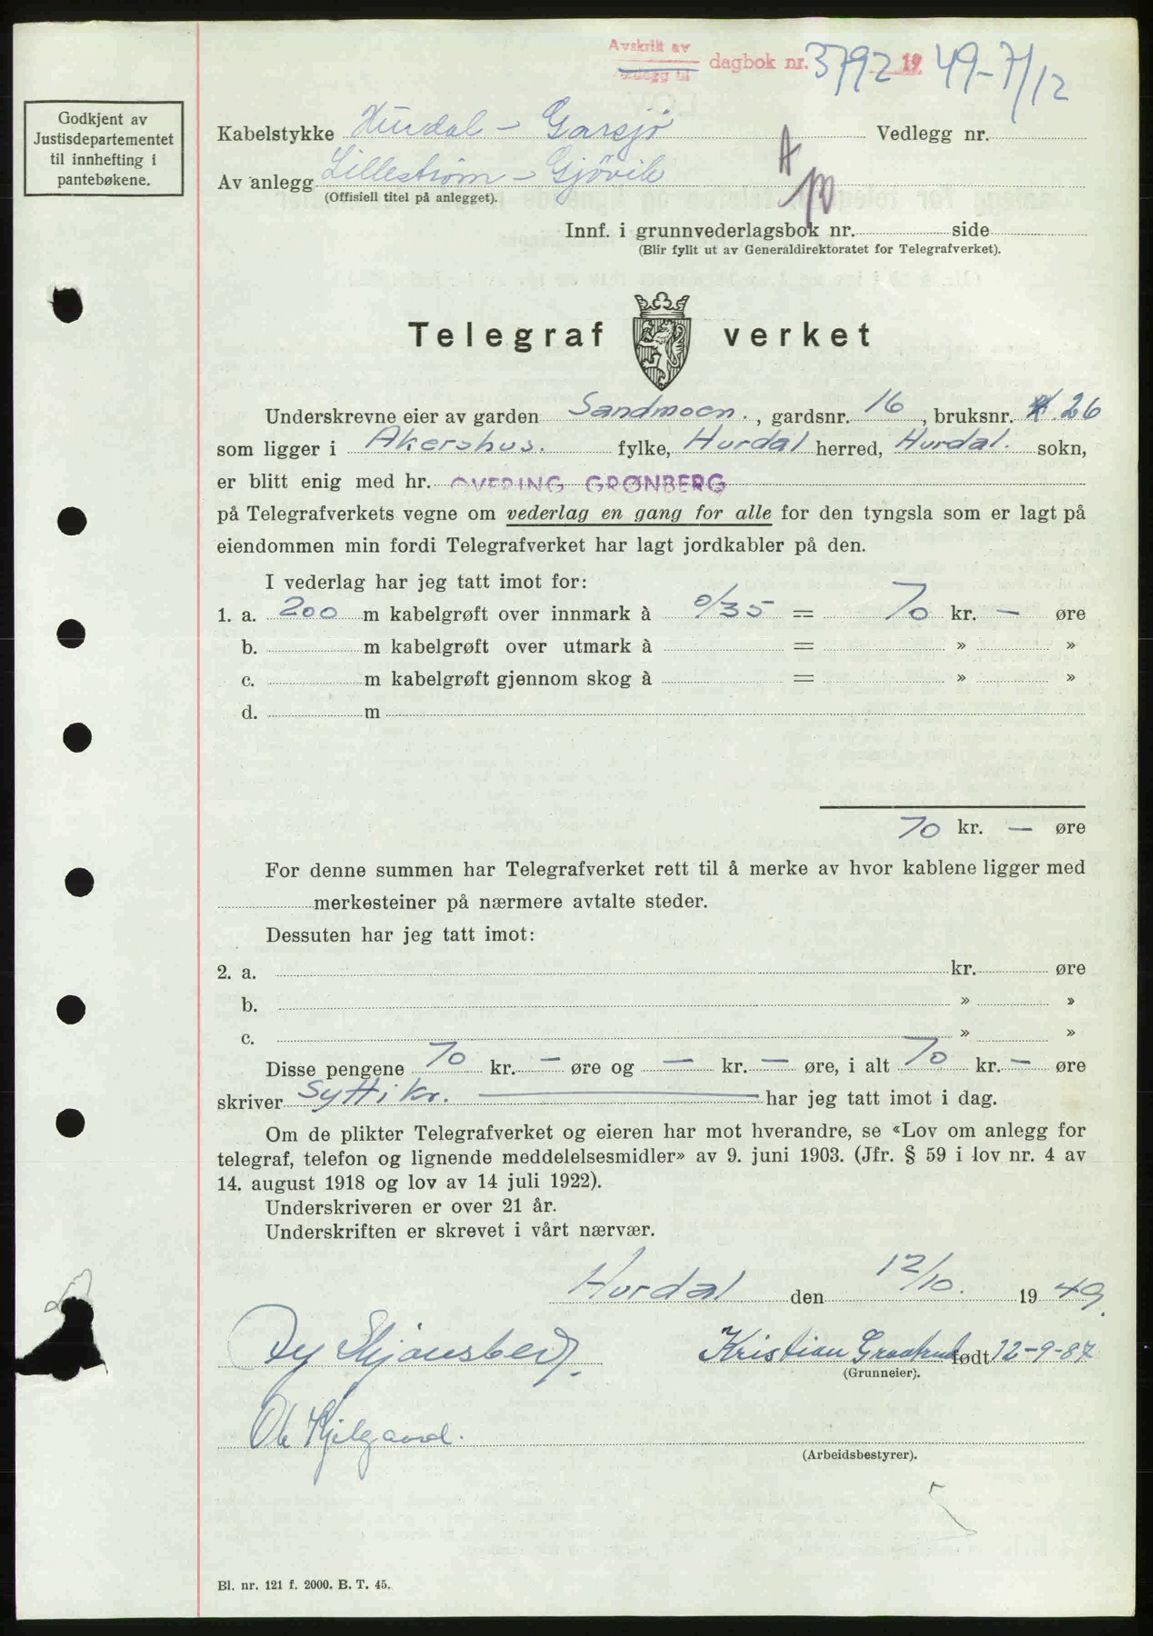 Avskrift av
Vedlegg til dagbok nr. 3792 1949-7/12
Godkjent av
Justisdepartementet
til innhefting i
pantebøkene.
Kabelstykke Hurdal - Garsjø Vedlegg nr.
Av anlegg Lillestrøm - Gjøvik
(Offisiell titel på anlegget).
Innf. i grunnvederlagsbok nr. side
(Blir fyllt ut av Generaldirektoratet for Telegrafverket).
Telegraf verket
Underskrevne eier av garden Sandmoen., gardsnr. 16, bruksnr. 26
som ligger i Akershus. fylke, Hurdal herred, Hurdal. sokn,
er blitt enig med hr. OVERING GRØNBERG
på Telegrafverkets vegne om vederlag en gang for alle for den tyngsla som er lagt på
eiendommen min fordi Telegrafverket har lagt jordkabler på den.
I vederlag har jeg tatt imot for:
1. a. 200 m kabelgrøft over innmark à 0/35 = 70 kr. — øre
b. m kabelgrøft over utmark à = » »
c. m kabelgrøft gjennom skog à = » »
d. m
70 kr. — øre
For denne summen har Telegrafverket rett til å merke av hvor kablene ligger med
merkesteiner på nærmere avtalte steder.
Dessuten har jeg tatt imot:
2. a. kr. øre
b. » »
c. » »
Disse pengene 70 kr. — øre og — kr. — øre, i alt 70 kr. — øre
skriver Sytti kr. har jeg tatt imot i dag.
Om de plikter Telegrafverket og eieren har mot hverandre, se «Lov om anlegg for
telegraf, telefon og lignende meddelelsesmidler» av 9. juni 1903. (Jfr. § 59 i lov nr. 4 av
14. august 1918 og lov av 14 juli 1922).
Underskriveren er over 21 år.
Underskriften er skrevet i vårt nærvær.
Hurdal den 12/10. 19 49.
Kristian født 12-9-87
(Grunneier).
Ole
(Arbeidsbestyrer).
Bl. nr. 121 f. 2000. B. T. 45.